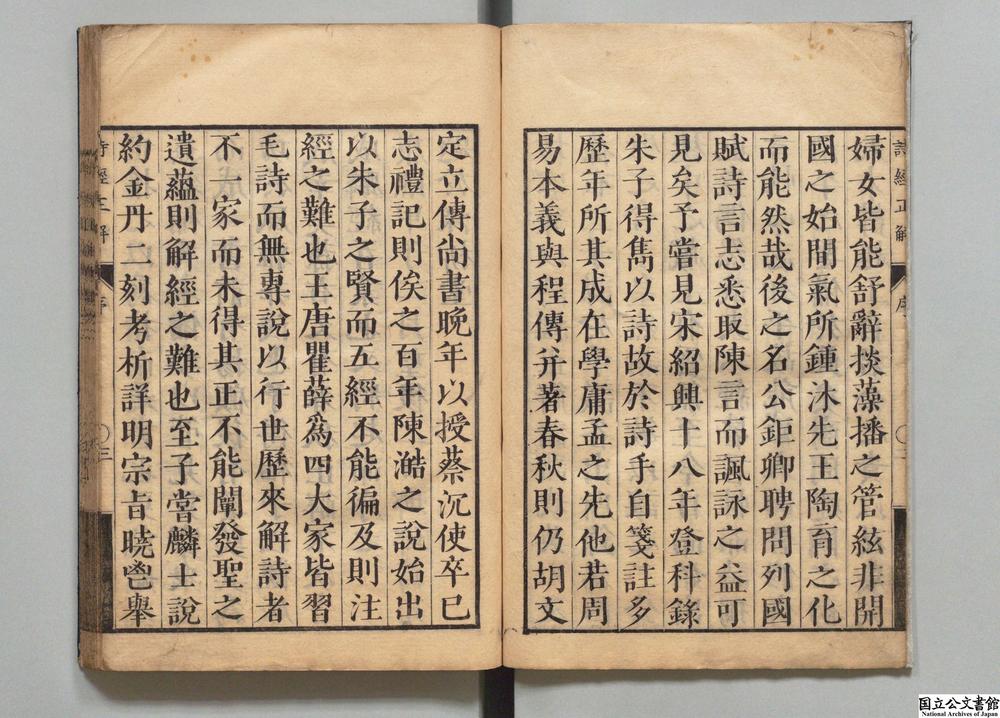 詩經正解
序
婦女皆能舒辭掞藻播之管絃非開
國之始間氣所鍾沐先王陶育之化
而能然哉後之名公鉅卿聘問列國
賦詩言志悉取陳言而諷詠之益可
見矣予嘗見宋紹興十八年登科錄
朱子得雋以詩故於詩手自箋註多
歷年所其成在學庸孟之先他若周
易本義與程傳并著春秋則仍胡文
定立傳尙書晚年以授蔡沉使卒已
志禮記則俟之百年陳澔之說始出
以朱子之賢而五經不能徧及則注
經之難也王唐瞿薛爲四大家皆習
毛詩而無專說以行世歷來解詩者
不一家而未得其正不能闡發聖之
遺蘊則解經之難也至子嘗麟士說
約金丹二刻考析詳明宗旨曉鬯舉
詩經正解
序
三
国立公文書館
National Archives of Japan